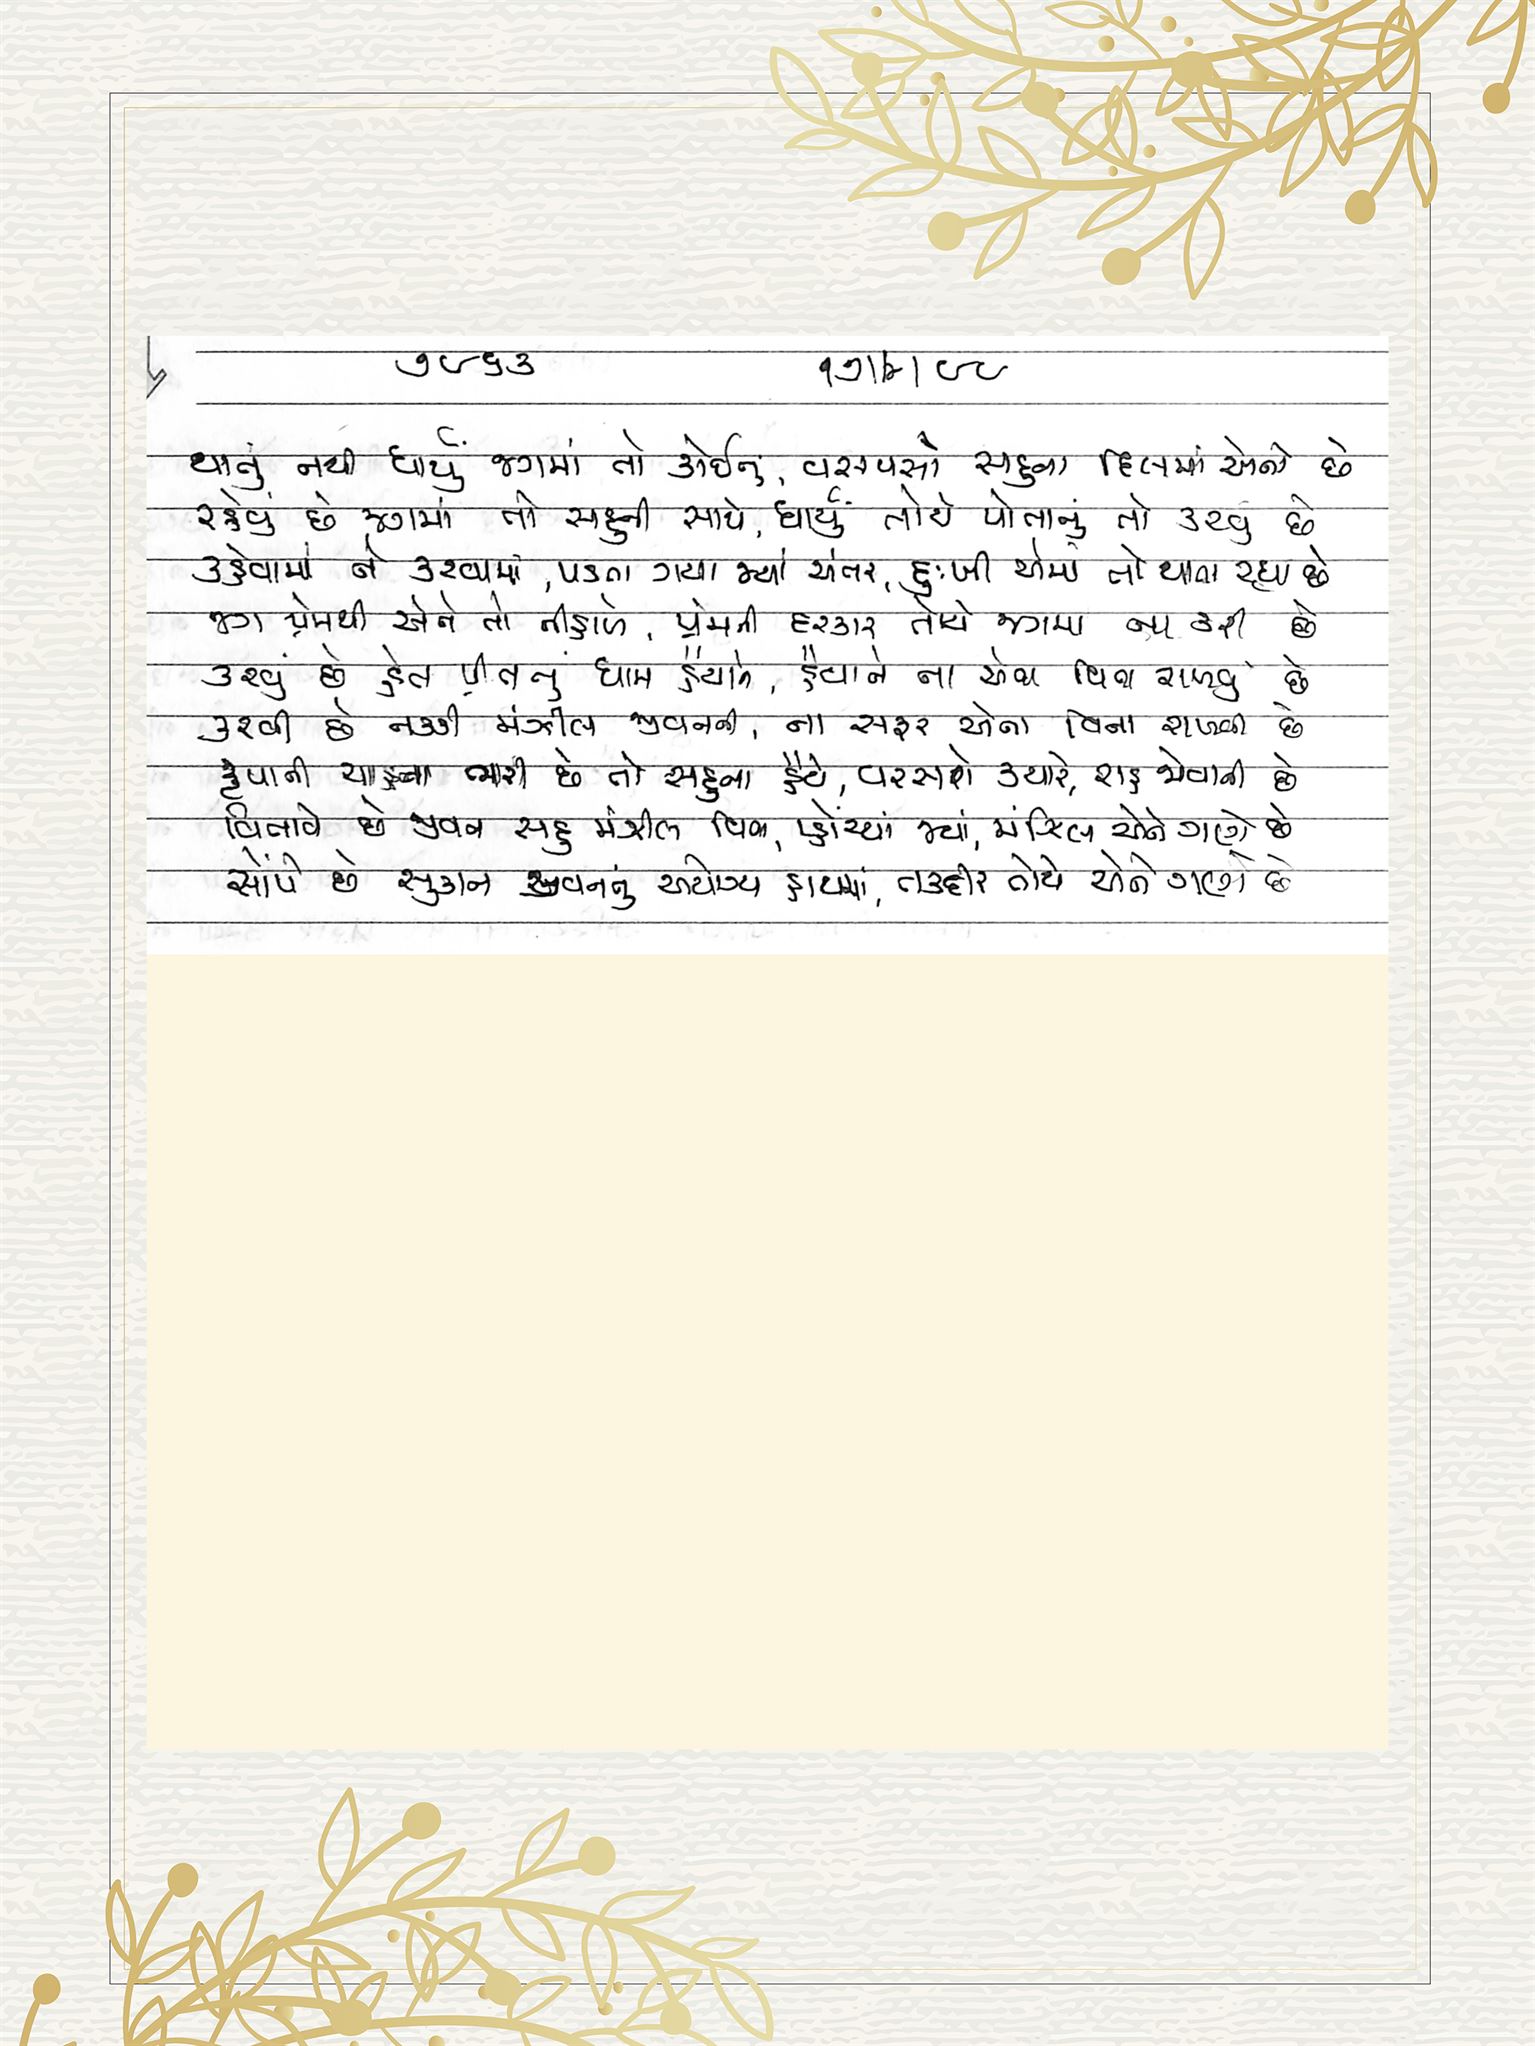 ૭૯૬૩ ૧૭/૪/૯૯
થાતું નથી ધાર્યું જગમાં તો કોઈનું, વસવસો સહુના દિલમાં એનો છે
રહેવું છે જગમાં તો સહુની સાથે, ધાર્યું તોયે પોતાનું તો કરવું છે
કહેવામાં ને કરવામાં, પડતા ગયા જ્યાં અંતર, દુઃખી એમાં તો થાતા રહ્યા છે
જગ પ્રેમથી એને તો નીહાળે, પ્રેમની દરકાર તોયે જગમાં ના કરી છે
કરવું છે હેત પ્રીતનું ધામ હૈયાને, હૈયાને ના એના વિના રાખવું છે
કરવી છે નક્કી મંઝીલ જીવનની, ના સફર એના વિના રાખવી છે
કૃપાની ચાહના ભારી છે તો સહુના હૈયે, વરસશે ક્યારે, રાહ જોવાની છે
વિતાવે છે જીવન સહુ મંઝીલ વિના, પ્હોંચ્યાં જ્યાં, મંઝિલ એને ગણી છે
સોંપી છે સુકાન જીવનનું અયોગ્ય હાથમાં, તકદીર તોયે એને ગણી છે